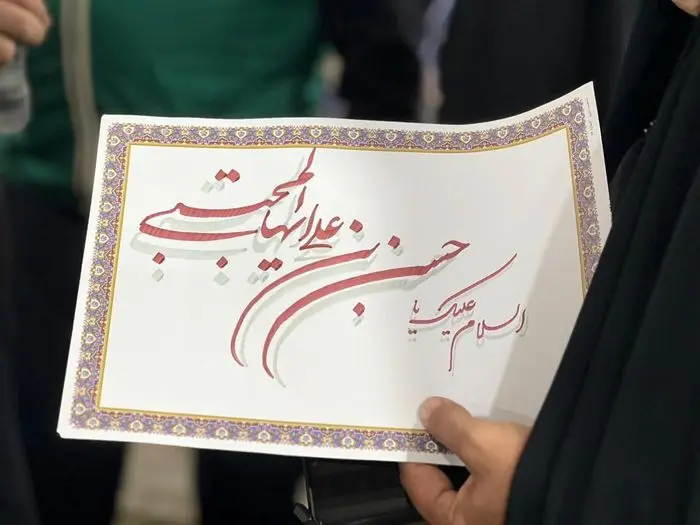 السلام علیک یا
حسن بن علی ایها المجتبی